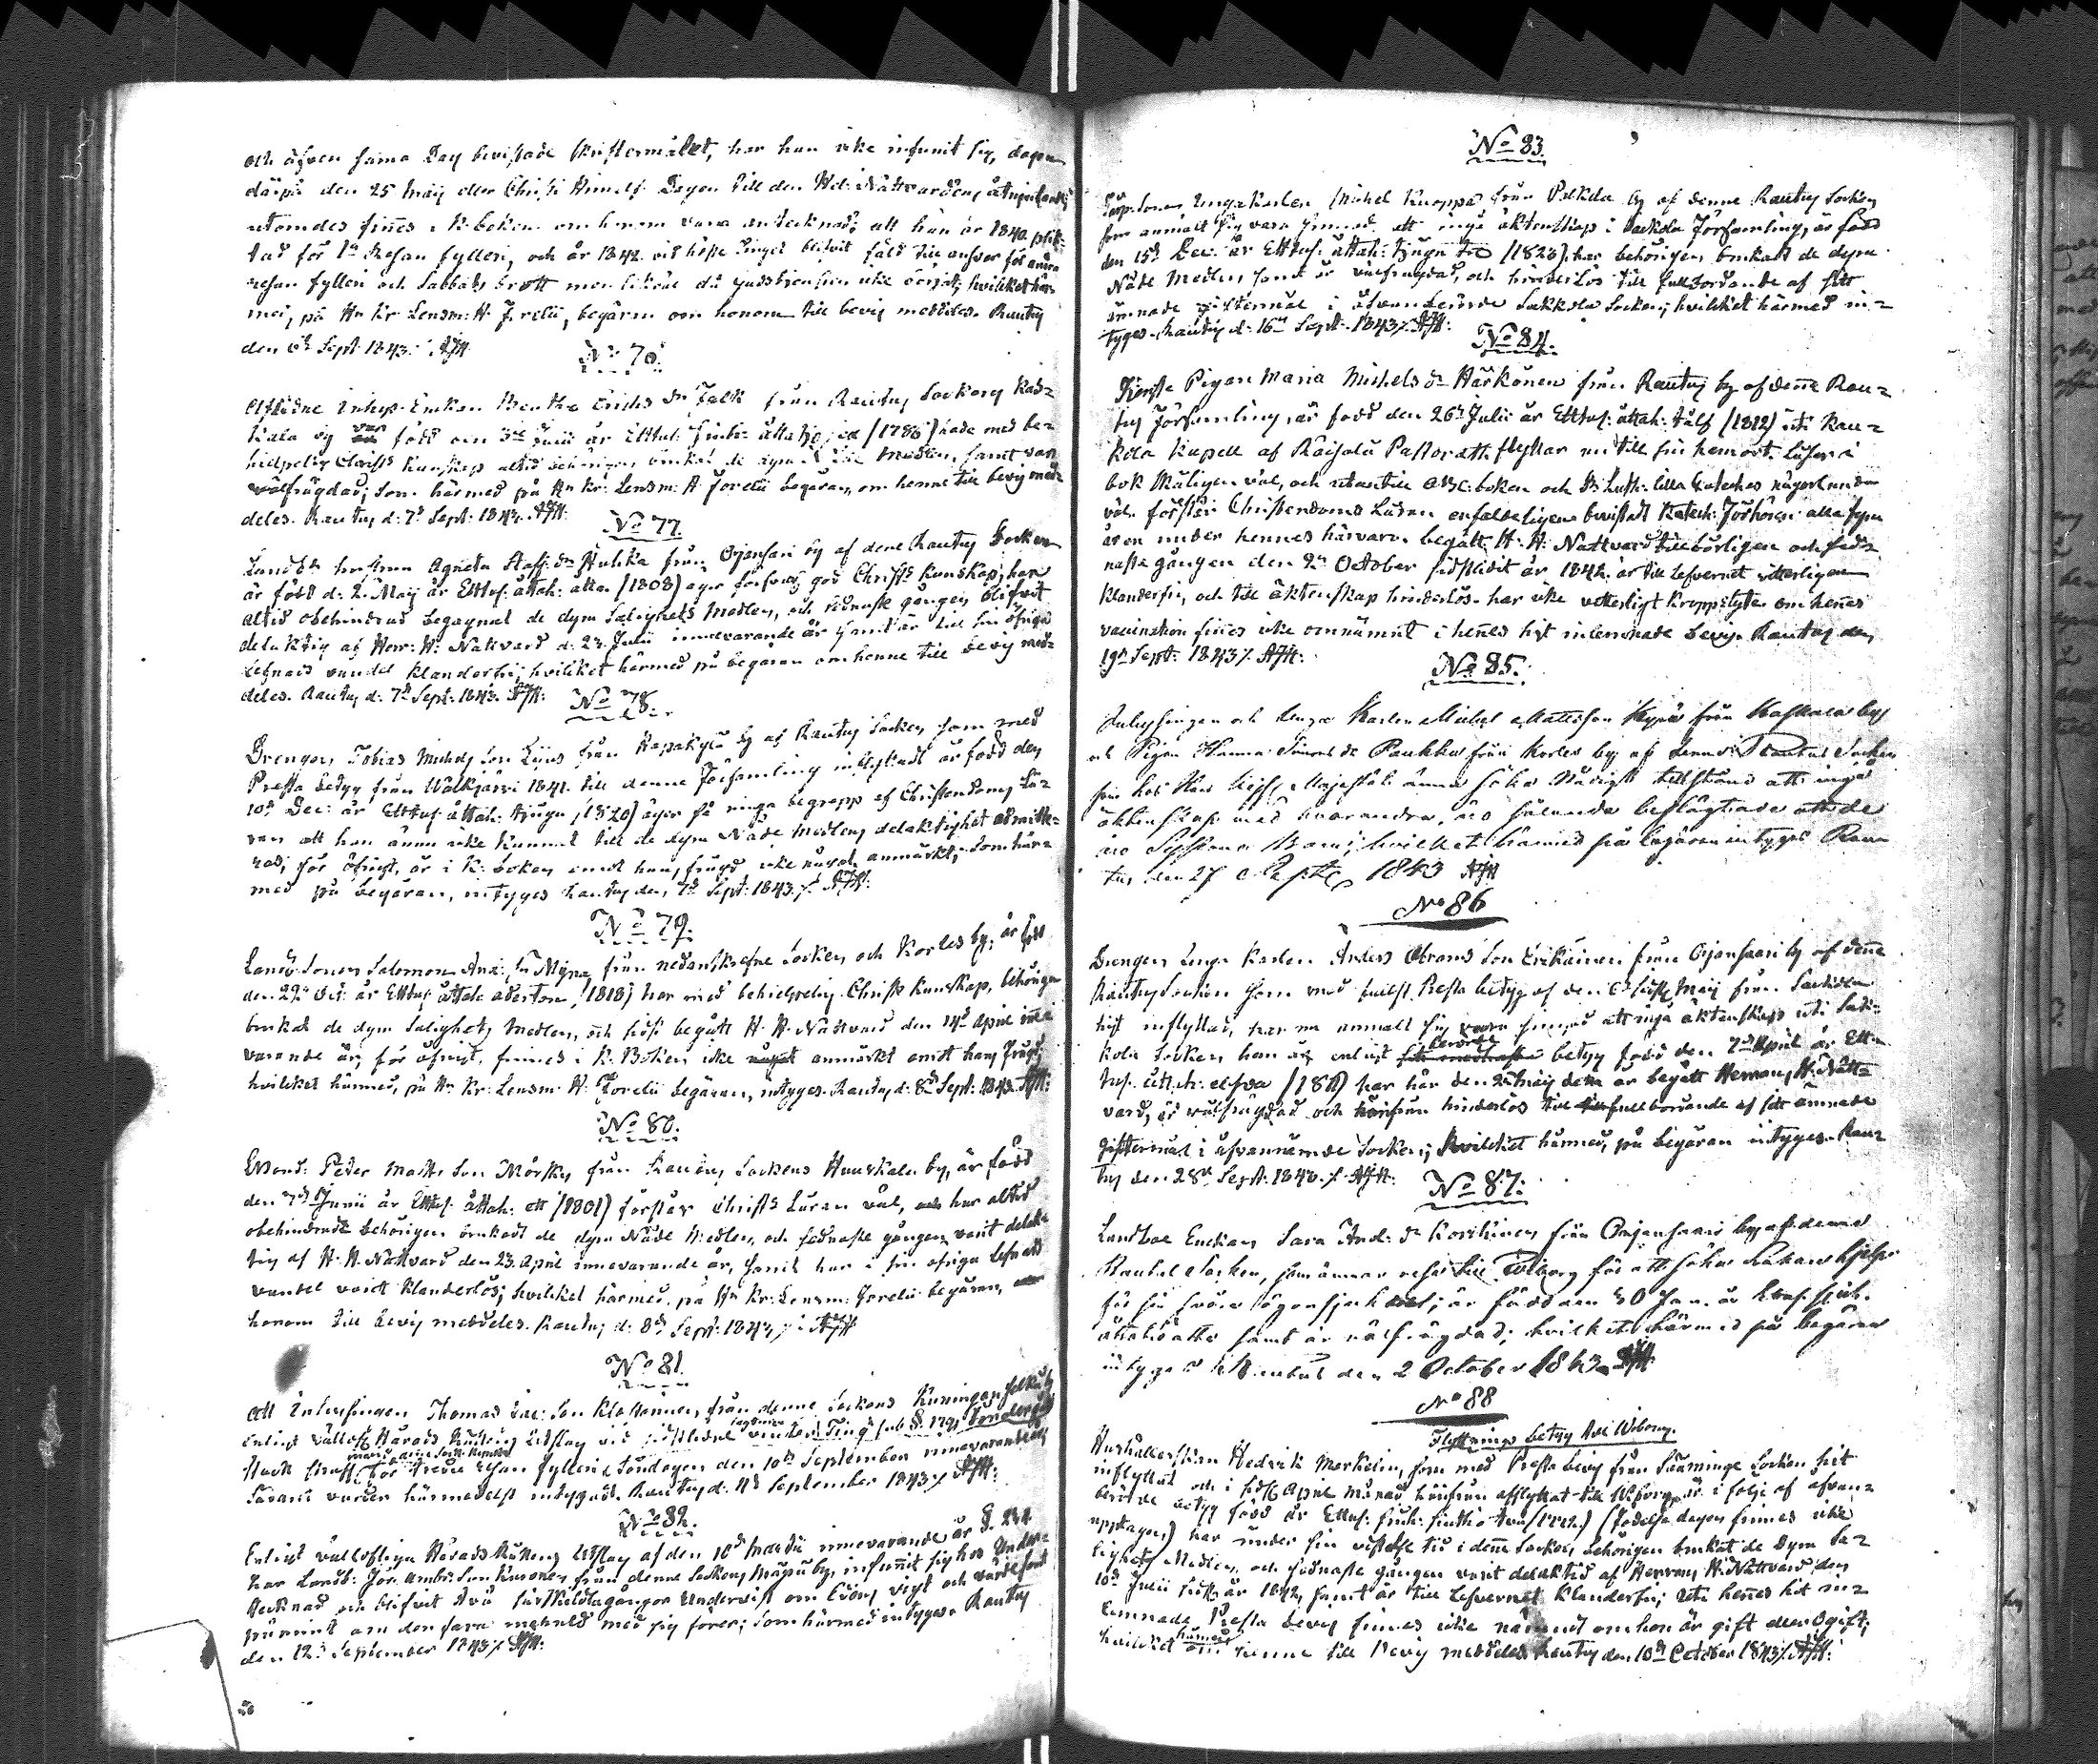 och äfven sama Dag bevistade skriftermålet, har han icke infunit sig, dagen
därpå den 25 Maij eller Christi Himelsf. Dagen till den Hel. Nattvardens åtnjutande;
utomdes fines i K. boken om honom vara antecknad; att han är 1840 plik-
tad för 1ª Resan fylleri, och år 1842 vid höste Tinget blifvit fäld till ansvar för andra
resan fylleri och Sabbats brott men likväl då gudstjensten icke börjat; hvilket här-
med, på Hr Kr. Lensm. H. Forelii, begäran om honom till bevis meddeles. Rautus
den 6te Sept. 1843. AJH.
No 76.
Aflidne Inhys. Enkan Beata Erichs Dr Falk från Rautus Sockens Kas-
kala by var född den 3die Junii år Ettus. siuhu. åttatio sex (1786) hade med be-
hielpelig Christs Kunskap altid behörigen brukat de dyra Nåde Medlen, samt var
välfrägdad; som härmed på Hr Kr. Lensm. H. Forelii begäran, om henne till bevis med-
deles. Rautus d: 7de Sept: 1843. AJH:
No 77.
Landb. hustrun Agneta Staff. Dr Hulkka från Orjansari by af dene Rautus Socken
är född d: 2 Maij år Ettus. åttah: åtta (1808) äger försvarl. god Christs kunskap; har
altid obehindrad begagnat de dyra Salighets Medlen, och sednaste gången blifvit
delaktig af Herr: H: Nattvard d: 23 Julii innevarande år samt är till sin öfriga
lefnads vandel klanderfri; hvilket härmed på begäran om henne till bevis med-
deles. Rautus d: 7de Sept: 1843. AJH:
No 78.
Drengen Tobias Michels Son Lijus från Rapakylä by af Rautus Socken, som med
Presta betyg från Walkjärvi 1841 till denne Församling inflyttadt är född den
10de Dec: år Ettus. åttah: tjugu (1820) äger så ringa begrepp af Christendoms Lä-
ran att han ännu icke kunnat till de dyra Nåde Medlens delaktighet admitte-
ras; för öfrigt, är i K: boken emot hans frägd icke något anmärkt; Som här-
med på begäran, intygas Rautus den 7de Sept: 1843 ./. AJH:
No 79.
Landb. Sonen Salomon And: Sn Myyrä från nedanskrefne Socken och Korles by, är född
den 29de Oct: år Ettus. åttah: aderton (1818) har med behielpelig Christs Kunskap, behörigen
brukat de dyra Salighets Medlen, och sidst begått H. H. Nattvard den 14de April inne-
varande år, för öfrigt, finnes i K. Boken icke något anmärkt emot hans frägd;
hvilket härmed, på Hr Kr: Lensm. H. Forelii begäran, intygas. Rautus, d: 8de Sept: 1843. AJH:
No 80.
Bond: Peder Matts Son Mörsky från Rautus Sockens Huuskala by, är född
den 7de Junii år Ettus. åttah: ett (1801) förstår Christs Läran väl, och har altid
obehindrad behörigen brukadt de dyra Nåde Medlen, och sednaste gången varit delak-
tig af H. H. Nattvard den 23 April innevarande år, samt har i sin öfriga lefnads
vandel varit Klanderlös; hvilket härmed, på Hr Kr: Lensm. Forelii begäran, om
honom till bevis meddeles. Rautus d: 8de Sept: 1843 ./. AJH
No 81.
Att Inhysingen Thomas Son från denne Sockens by
enligt Vällofl. Härads Rättens Utslag vid sistlidne vinter Ting sub §. 179 Söndagen
straff för tredie resan fylleri Söndagen den 10de September innevarande år
varder härmedelst intygadt. Rautus d: 11te September 1843 ./. AJH:
No 82.
Enligt vällofliga Härads Rättens Utslag af den 10de Martii innevarande år §. 244
har Landb: Jör. Ambr. Son Kuronen från denne Sockens Mäpä by, infunit sig hos Under-
tecknad och blifvit två särskildta gånger undervist om Edens vigt och värde samt
påmint om den fara meneed med sig förer; Som härmed intygas. Rautus
den 12te September 1843 ./. AJH:
No 83.
Torp. Sonen Unga Karlen Michel Knoppa från Palkela by af denne Rautus Socken
som anmält sig vara sinnad att ingå äktenskap i Sackola Församling, är född
den 15de Dec: år Ettus. åttah: tjugu tre (1823) har behörigen brukadt de dyra
Nåde Medlen samt är välfrägdad, och hinderlös till fullbordande af sitt
ämnade giftermål i åfvanberörde Sakkola Socken; hvilket härmed in-
tygas. Rautus d: 16de Sept: 1843 ./. AJH:
No 84.
Tjenste Pigan Maria Michels Dr Härkönen från Rautus by af dene Rau-
tus Församling, är född den 26te Julii år Ettus. åttah: tolf (1812) uti Rau-
kola Kapell af Räisälä Pastorat, flyttar nu till sin hemort. Läser i
bok skäligen väl, och utantill ABC-boken och D. Luth: lilla Kateches någorlunda
väl. förstår Christendoms Läran enfaldeligen bevistadt Katech: Förhören alla fyra
åren under hennes härvaro, begått H. H. Nattvard tillbörligen och sed-
naste gången den 2dra October sidstlidit år 1842 är till Lefvernet vitterligen
klanderfri, och till äktenskap hinderlös. har icke vetterligt kroppslyte. om henes
vaccination fines icke omnämnt i henes hit inlemnade bevis. Rautus den
19de Sept: 1843 ./. AJH:
No 85.
Inhysingen och Unga Karlen Michel Mattsson Kypä från Haskala by
och Pigan Hanna Simons dr Paukku från Korles by af denne Rautus Socken
som hos Hans Kejs. Majestät ämna söka Nådigt tillstånd att ingå
äktenskap med hvarandra, äro sålunda beslägtade att de
äro Syskona Barn; hvilket härmed på begäran intygas Rau-
tus den 27 Septbr 1843 AJH
No 86
Drengen Unga Karlen Anders Abrams Son Erikäinen från Orjansaari by af dene
Rautus Socken som med Presta betyg af den 6 sistl. Maij från Sackola
hit inflyttat, har nu anmält sig vara sinnad att ingå äktenskap uti Sak-
kola Socken, han är enligt berörde betyg född den 7de April år Ett-
tus. åttah: elfva (1811) har här den 25 Maij detta år begått Herrans H. Natt-
vard, är välfrägdad och härifrån hinderlös till fullbordande af sitt ämnade
giftermål i åfvannämnde Socken; hvilket härmed, på begäran intygas. Rau-
tus den 28de Sept. 1843 ./. AJH:
No 87.
Landboe Enckan Sara And: Dr Korkkinen från Orjansaari by af denna
Rautus Socken, som ämnar resa till Wiborg för att söka Läkare hjelp
för sin svåra ögonsjukdom; är född den 30 Jan. år Ettus. sjuh.
åttatio åtta samt är välfrägdad; hvilket härmed på begäran
intygas Rautus den 2 October 1843. AJH
No 88
Flyttnings betyg till Wiborg.
Hushållerskan Hedvik Merkelin, som med Presta bevis från Sääminge Socken hit
inflyttat och i sidstl. April månad härifrån afflyttat till Wiborg, är i följe af åfvan-
berörde betyg född år Ettus. sjuh: siuttio två (1772.) (födelse dagen finnes icke
upptagen) har under sin vistelse tid i dene Socken, behörigen brukat de Dyra Sa-
lighets Medlen, och sednaste gången varit delaktig af Herrans H. Nattvard den
10de Julii sidstl. år 1842, samt är till Lefvernet klanderfri; uti henes hit in-
lemnade Presta bevis finnes icke nämnt om hon är gift eller ogift;
hvilket härmed om henne till bevis meddeles. Rautus den 10de October 1843 ./. AJH: